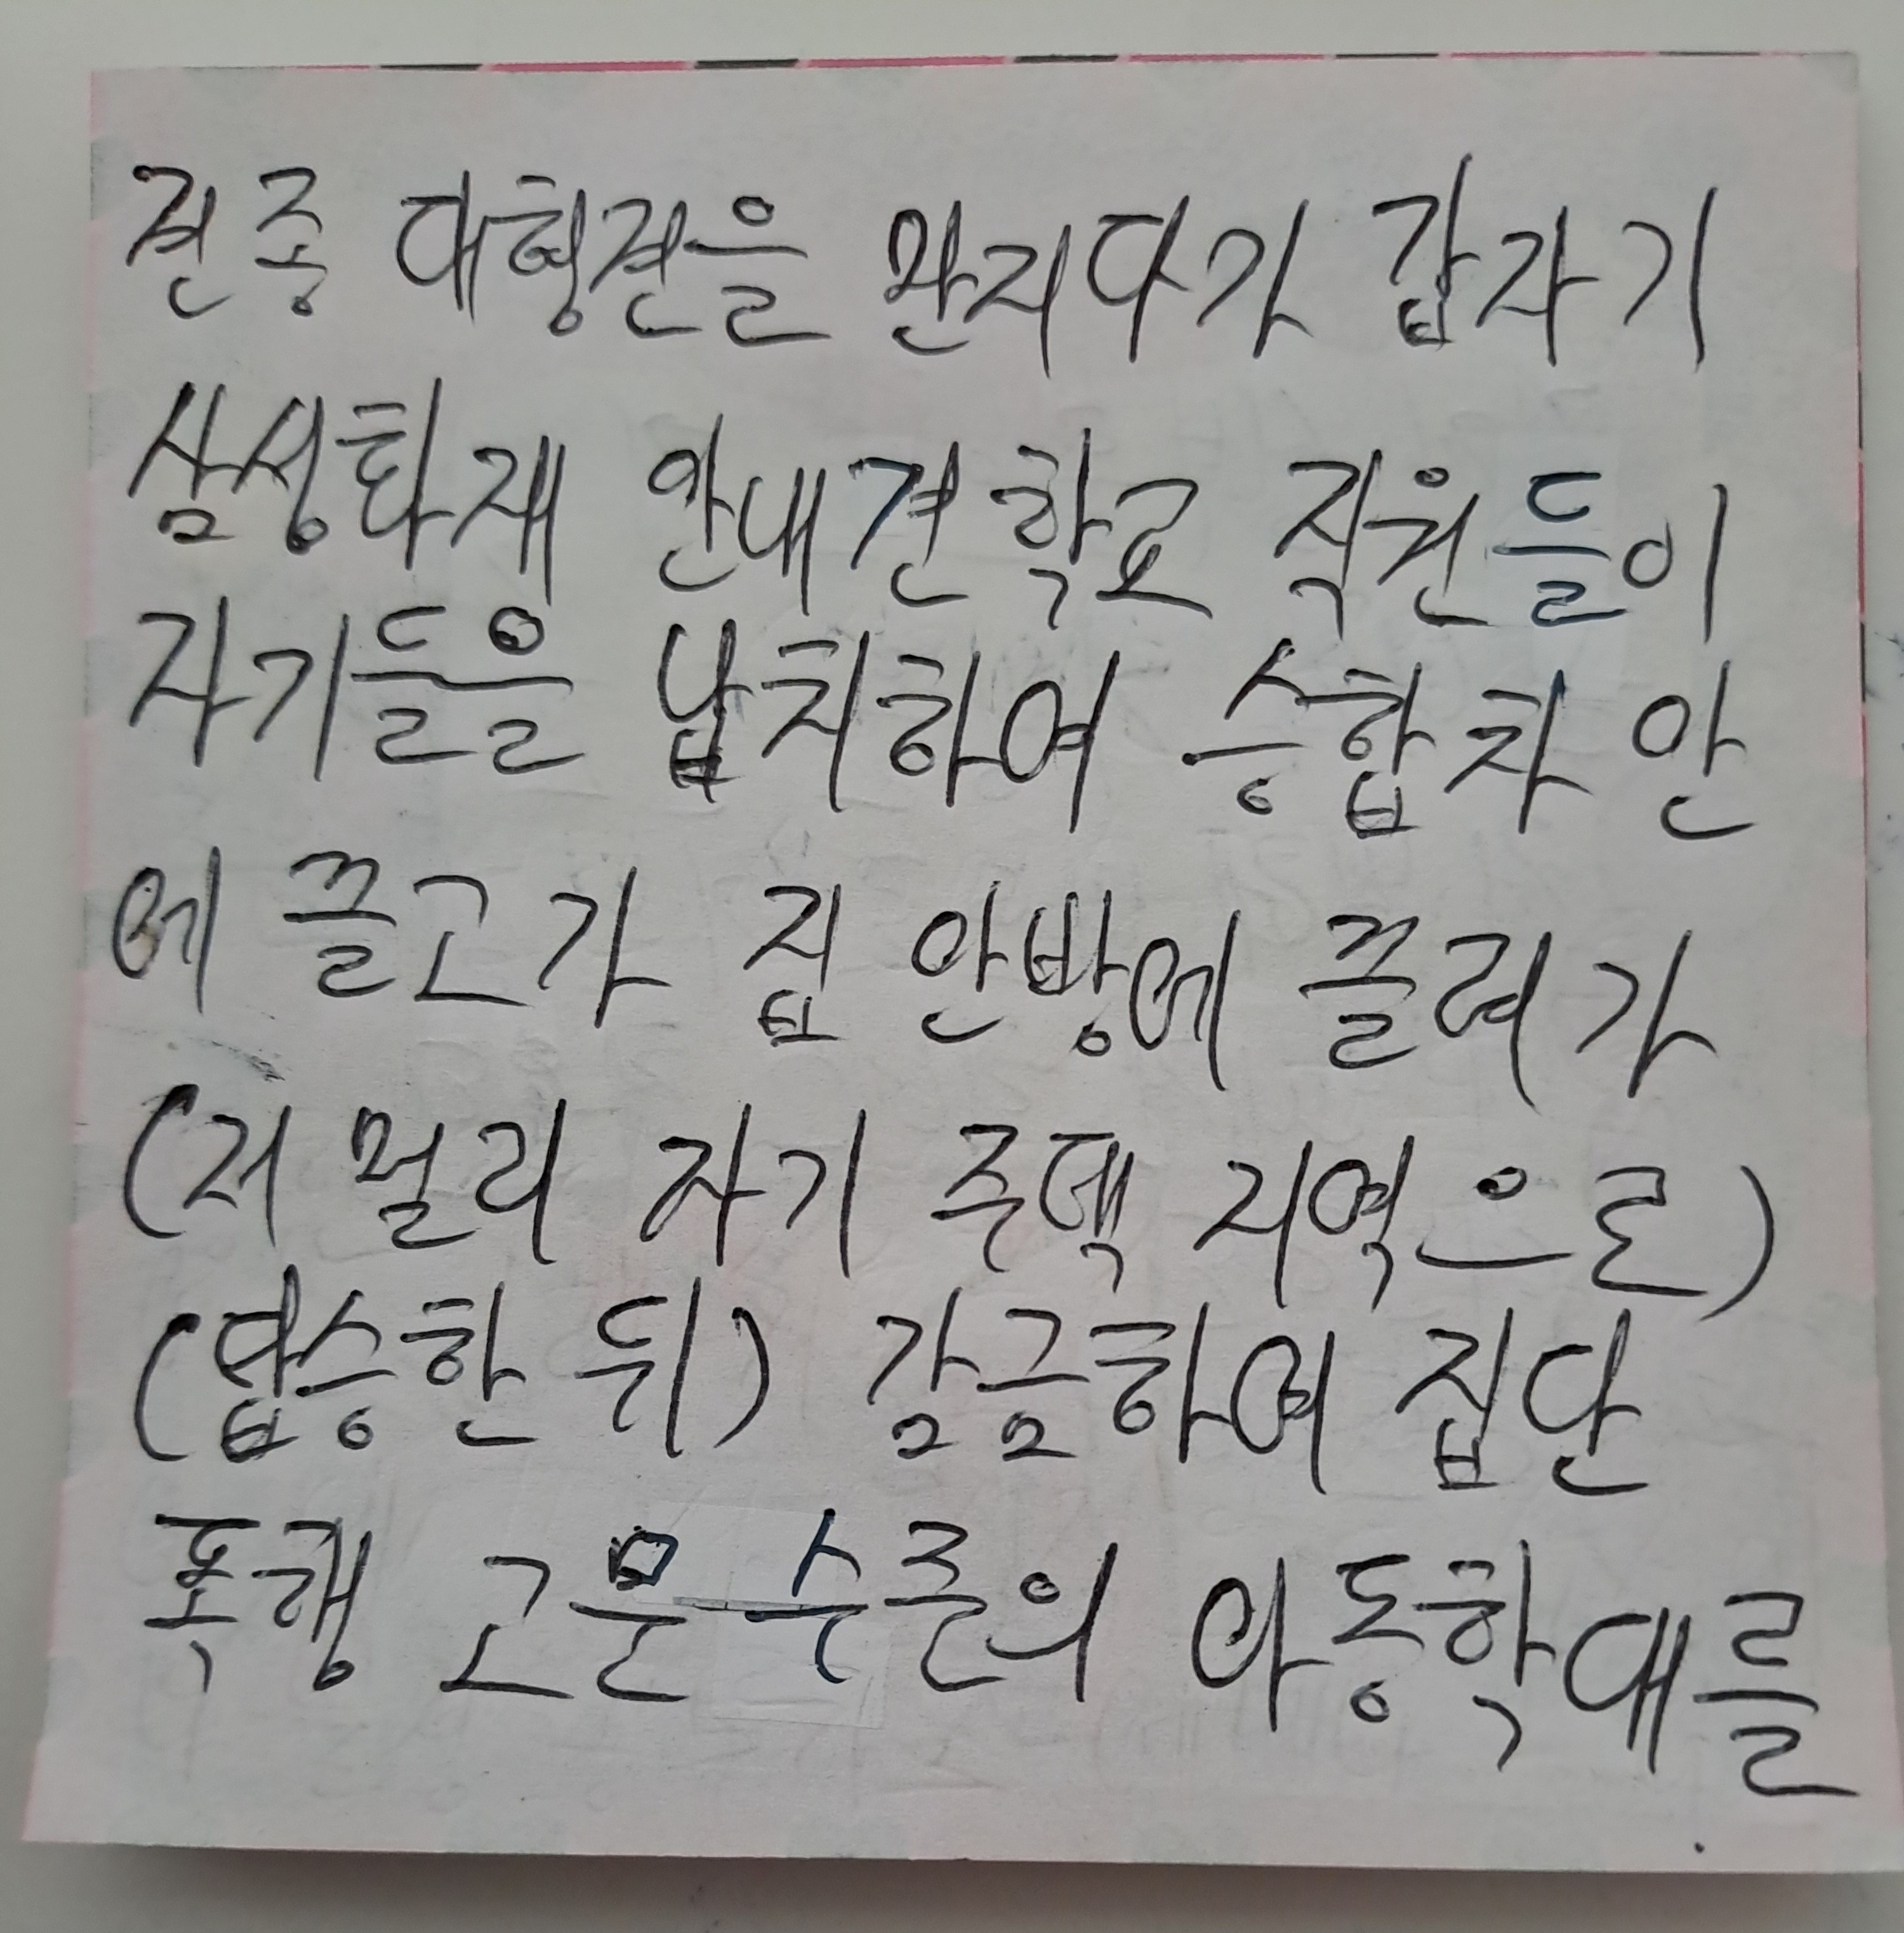 견종 대형견을 만지다가 갑자기
삼성화재 안내견학교 직원들이
자기들을 납치하여 승합차 안
에 끌고가 집 안방에 끌려가
(저 멀리 자기 주택 지역으로)
(탑승한 뒤) 감금하여 집단
폭행 고문 수준의 아동학대를